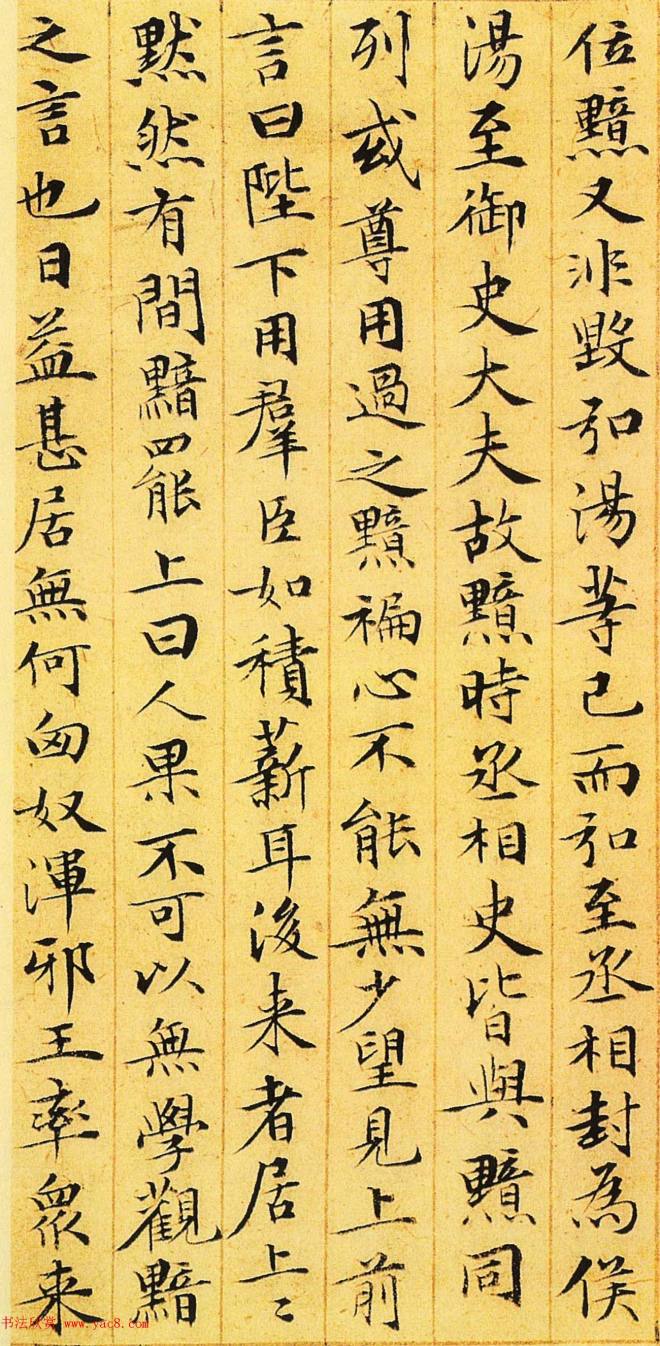 位黯又非毀弘湯等已而弘至丞相封為侯
湯至御史大夫故黯時丞相史皆與黯同
列或尊用過之黯褊心不能無少望見上前
言曰陛下用群臣如積薪耳後来者居上〻
黙然有間黯罷上曰人果不可以無學觀黯
之言也日益甚居無何匈奴渾邪王率衆来
书法欣赏 www.yac8.com